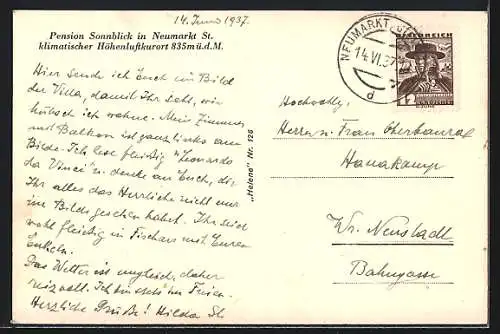 14. Juni 1937.
Pension Sonnblick in Neumarkt St.
klimatischer Höhenluftkurort 835 m ü. d. M.
Hier sende ich Euch ein Bild
der Villa, damit Ihr seht, wie
hübsch ich wohne. Mein Zimmer
mit Balkon ist ganz links am
Bilde. Ich lese fleißig "Leonardo
da Vinci" u. denke an Euch, die
Ihr alles das Herrliche nicht nur
im Bilde gesehen habet. Ihr seid
wohl fleißig in Fischau mit Euren
Enkeln.
Das Wetter ist ungleich, daher
reizvoll. Ich
Herzliche Grüße! Hilda St.
"Helene" Nr. 126
NEUMARKT
14.VI.37
d
ÖSTERREICH
12
Hochwohlg.
Herrn u. Frau Oberbaurat
Hanakamp
Wr. Neustadt
Bahngasse